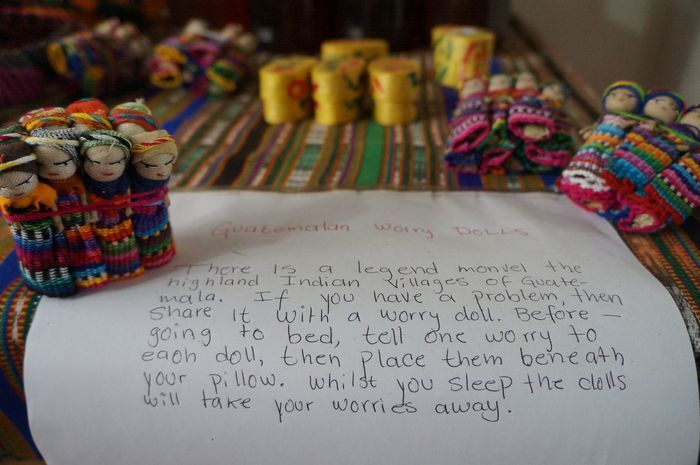 Guatemalan Worry DOLLS
There is a legend monvel the
highland Indian villages of Guate-
mala. If you have a problem, then
share it with a worry doll. Before -
going to bed, tell one worry to
each doll, then place them beneath
your pillow. Whilst you sleep the dolls
will take your worries away.